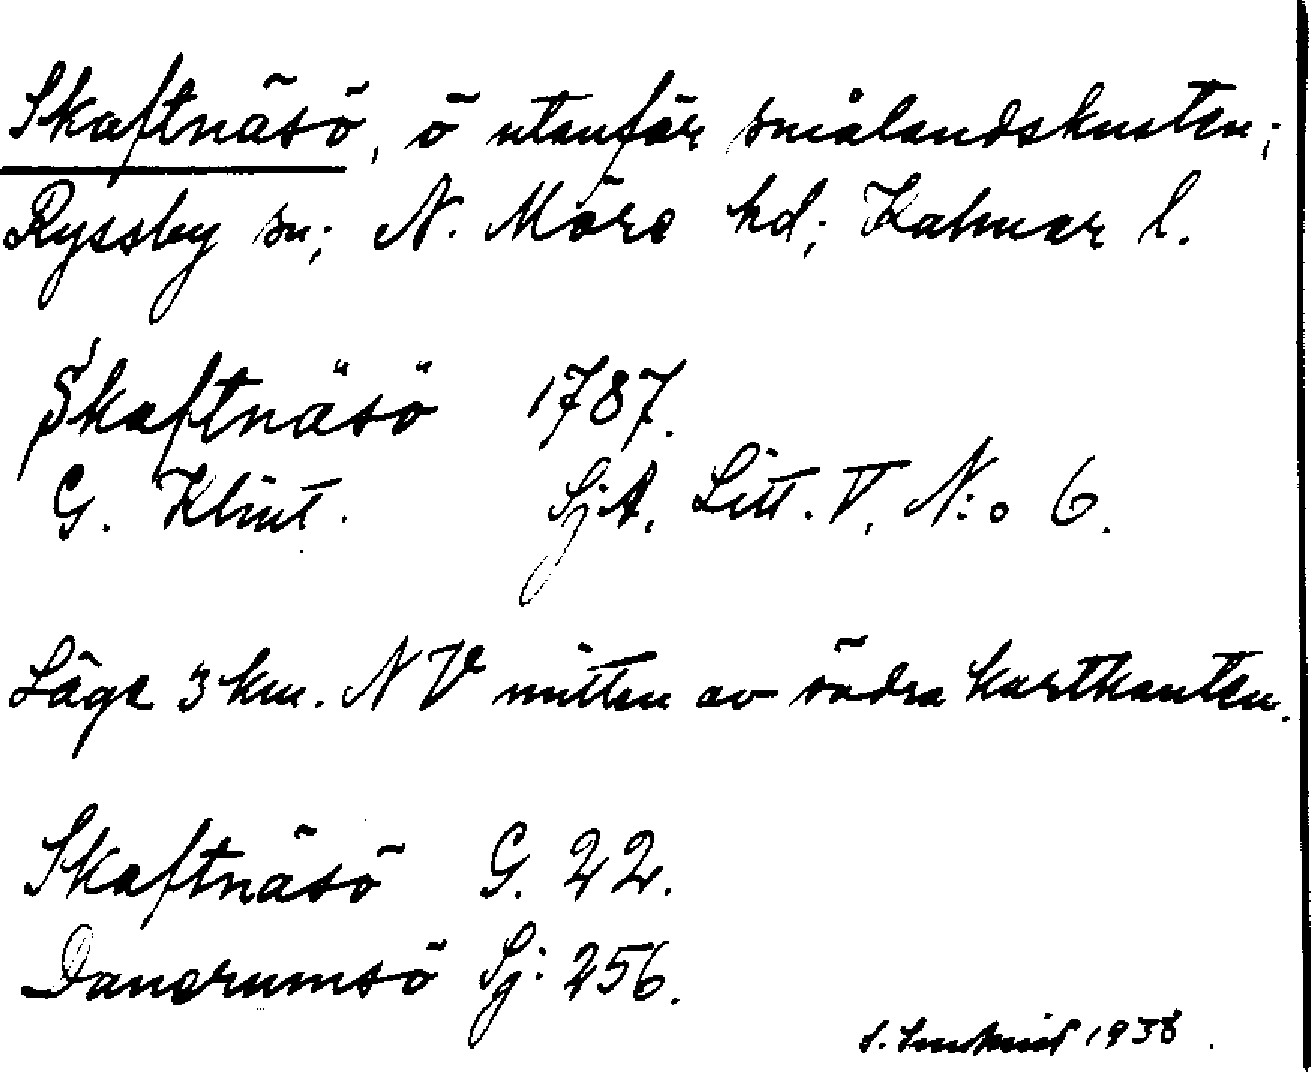 Skaftnäsö, ö utanför smålandskusten;
Ryssby sn; N. Möre hd; Kalmar l.
Skaftnäsö 1787.
G. Klint. SjA. Litt. V. N:o 6.
Läge 3 km. NV mitten av södra kartkanten.
Skaftnäsö G. 22.
Danerumsö Sj: 256.
1938.